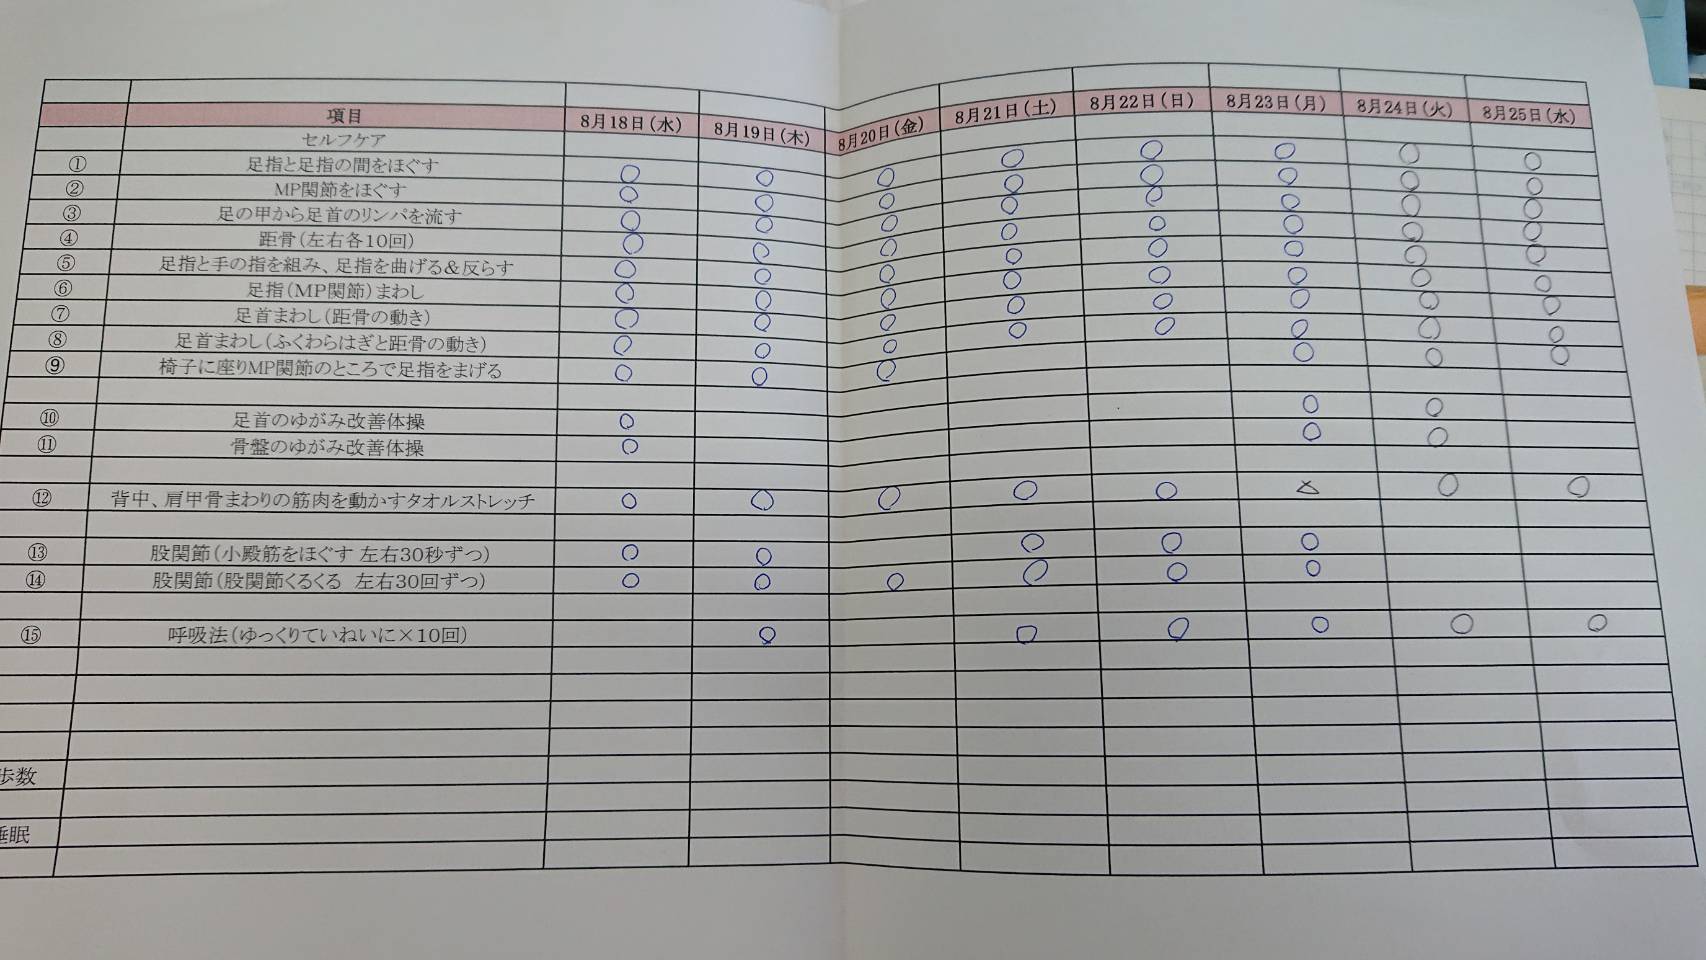 項目 8月18日(水) 8月19日(木) 8月20日(金) 8月21日(土) 8月22日(日) 8月23日(月) 8月24日(火) 8月25日(水)
セルフケア
① 足指と足指の間をほぐす ○ ○ ○ ○ ○ ○ ○ ○
② MP関節をほぐす ○ ○ ○ ○ ○ ○ ○ ○
③ 足の甲から足首のリンパを流す ○ ○ ○ ○ ○ ○ ○ ○
④ 距骨(左右各10回) ○ ○ ○ ○ ○ ○ ○ ○
⑤ 足指と手の指を組み、足指を曲げる&反らす ○ ○ ○ ○ ○ ○ ○ ○
⑥ 足指(MP関節)まわし ○ ○ ○ ○ ○ ○ ○ ○
⑦ 足首まわし(距骨の動き) ○ ○ ○ ○ ○ ○ ○ ○
⑧ 足首まわし(ふくわらはぎと距骨の動き) ○ ○ ○ ○ ○ ○ ○ ○
⑨ 椅子に座りMP関節のところで足指をまげる ○ ○ ○ ○ ○ ○
⑩ 足首のゆがみ改善体操 ○ ○ ○
⑪ 骨盤のゆがみ改善体操 ○ ○ ○
⑫ 背中、肩甲骨まわりの筋肉を動かすタオルストレッチ ○ ○ ○ ○ ○ △ ○ ○
⑬ 股関節(小殿筋をほぐす 左右30秒ずつ) ○ ○ ○ ○ ○
⑭ 股関節(股関節くるくる 左右30回ずつ) ○ ○ ○ ○ ○ ○
⑮ 呼吸法(ゆっくりていねいに×10回) ○ ○ ○ ○ ○ ○
歩数
睡眠